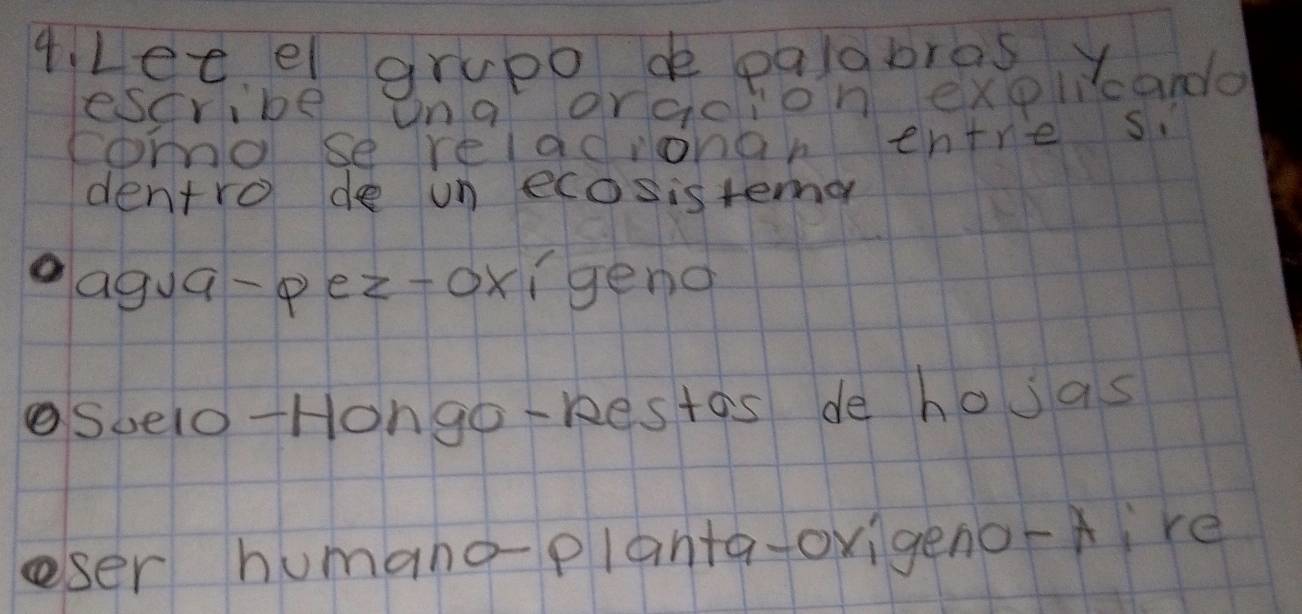 4. Lee el grupo de palabras y
escribe una oración explicando
como se relacionan entre si
dentro de un ecosistema
•agua-pez-oxígeno
•Suelo-Hongo-Restos de hojas
•ser humano-planta-oxigeno-Aire